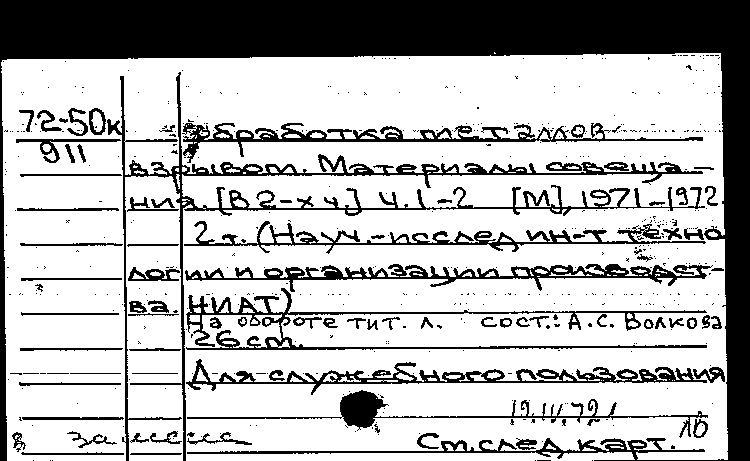 72-50к
911
Обработка металлов
взрывом. Материалы совеща-
ния. [В 2-х ч.] Ч. 1-2 [М], 1971-1972.
2 т. (Науч.-исслед ин-т техно
логии и организации производст-
ва. НИАТ)
На обороте тит. л. сост.: А.С. Волкова
26 см.
Для служебного пользования
19.IV.72
См. след. карт.